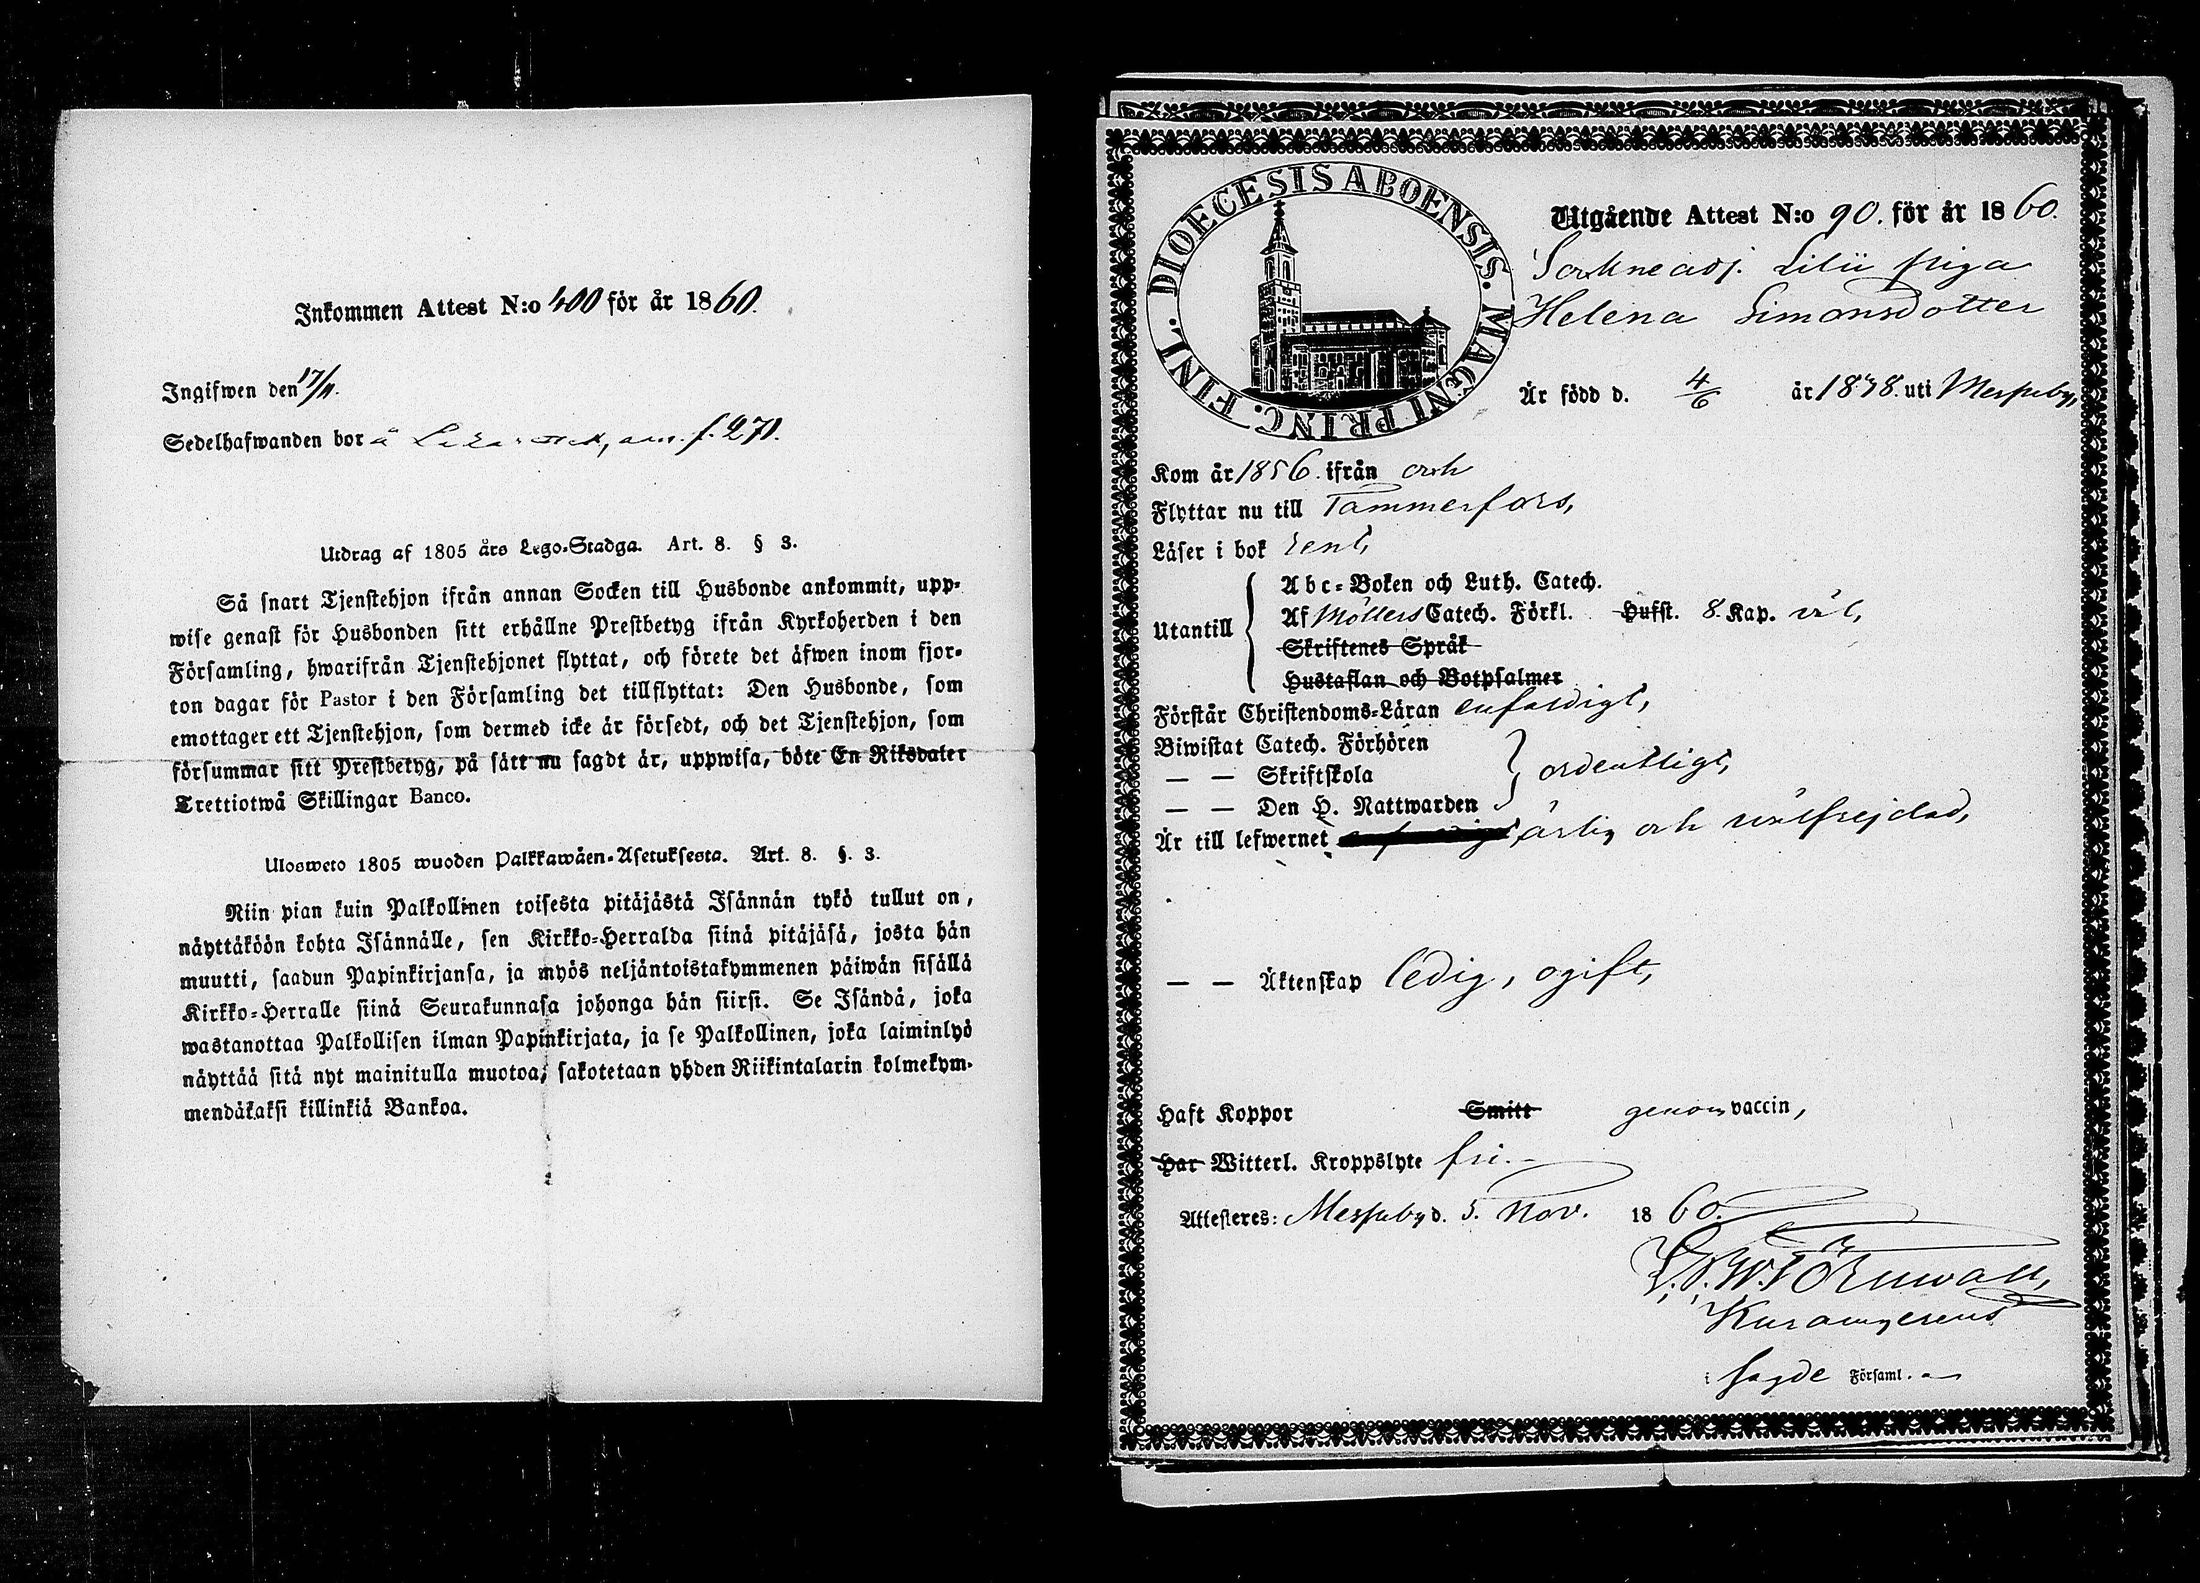 Inkommen Attest N:o 400 för år 1860.
Ingifwen den 17/11.
Sedelhafwanden bor å f. 271.
Utdrag af 1805 års Lego-Stadga. Art. 8. § 3.
Så snart Tjenstehjon ifrån annan Socken till Husbonde ankommit, upp-
wise genast för Husbonden sitt erhållne Prestbetyg ifrån Kyrkoherden i den
Församling, hwarifrån Tjenstehjonet flyttat, och förete det äfwen inom fjor-
ton dagar för Pastor i den Församling det tillflyttat: Den Husbonde, som
emottager ett Tjenstehjon, som dermed icke är försedt, och det Tjenstehjon, som
försummar sitt Prestbetyg, på sätt nu sagdt är, uppwisa, böte En Riksdaler
Trettiotwå Skillingar Banco.
Ulosweto 1805 wuoden Palkkawäen-Asetuksesta. Art. 8. §. 3.
Niin pian kuin Palkollinen toisesta pitäjästä Isännän tykö tullut on,
näyttäköön kohta Isännälle, sen Kirkko-Herralda siinä pitäjäsä, josta hän
muutti, saadun Papinkirjansa, ja myös neljäntoistakymmenen päiwän sisällä
Kirkko-Herralle siinä Seurakunnasa johonga hän siirsi. Se Isändä, joka
wastanottaa Palkollisen ilman Papinkirjata, ja se Palkollinen, joka laiminlyö
näyttää sitä nyt mainitulla muotoa, sakotetaan yhden Riikintalarin kolmekym-
mendäkaksi killinkiä Bankoa.
DIOECESIS ABOENSIS. MAGNI PRINC. FINL.
Utgående Attest N:o 90. för år 1860.
Sockneadj. Lilii piga
Helena Simonsdotter
Är född d. 4/6 år 1838. uti Messuby,
Kom år 1856. ifrån och
Flyttar nu till Tammerfors,
Läser i bok rent,
Utantill
Abc-Boken och Luth. Catech.
Af Möllers Catech. Förkl. Hufst. 8. Kap. väl,
Skriftenes Språk
Hustaflan och Botpsalmer
Förstår Christendoms-Läran enfaldigt,
Biwistat Catech. Förhören
— — Skriftskola
ordentligt,
— — Den H. Nattwarden
Är till lefwernet ärlig och wälfrejdad,
— — Äktenskap ledig, ogift,
Haft Koppor Smitt genom vaccin,
Har Witterl. Kroppslyte fri.-
Attesteres: Messuby d. 5. Nov. 1860.
Törnwall,
i sagde Församl.